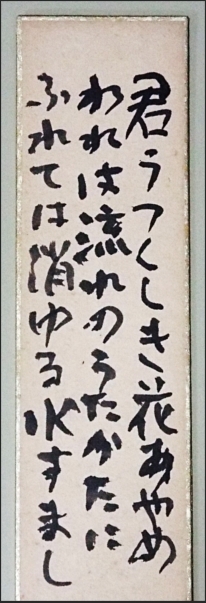 君うつくしき花あやめ
われは流れのうたかたに
ふれては消ゆる水すまし